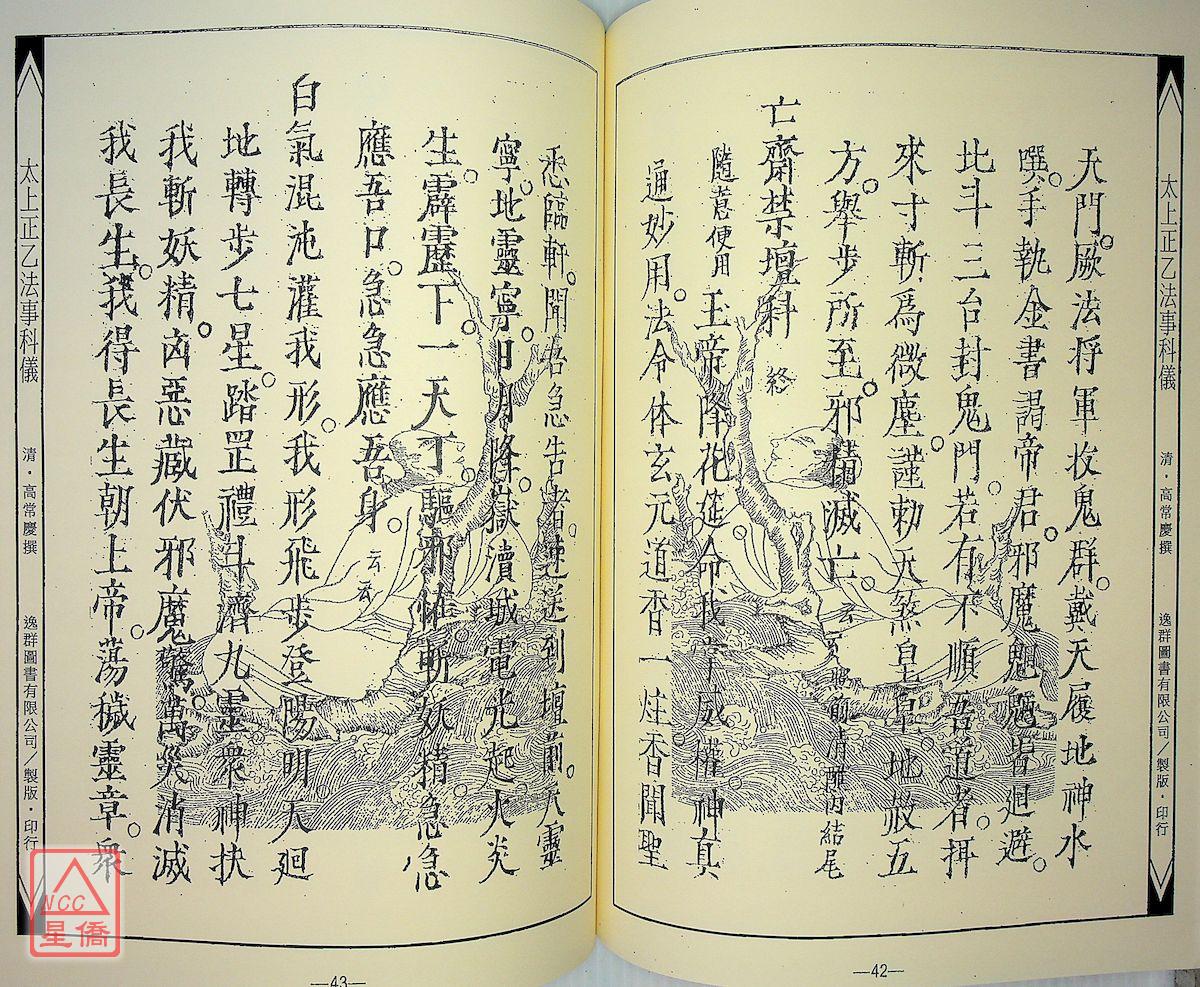 太上正乙法事科儀　清．高常慶撰　逸群圖書有限公司／製版．印行
天門。厥法捋軍收鬼群。戴天履地神水
噀。手執金書謁帝君。邪魔魍魎皆廻避。
北斗三台封鬼門。若有不順吾道者。拝
來寸斬為微塵。謹勅天煞皇皇地殺五
方。舉步所至。邪精滅亡。云云照前清醮內結尾
亡齋禁壇科　終
隨意便用　玉帝降花筵命我掌威權神真
通妙用。法令体玄元道香一炷香聞聖
—42—
悉臨軒。聞吾急告者。速送到壇前。天靈
寧。地靈寧。日月降。嶽瀆城電光起。火炎
生。霹靂下。一天丁。驅邪怪。斬妖精急急
應吾口。急急應吾身。云云
白氣混沌灌我形。我形飛步登陽明天廻
地轉步七星。踏罡禮斗濟九靈衆神抉
我斬妖精。凶惡藏伏邪魔驚。萬災消滅
我長生。我得長生朝上帝。蕩穢靈章。衆
—43—
太上正乙法事科儀　清．高常慶撰　逸群圖書有限公司／製版．印行
NCC
星僑